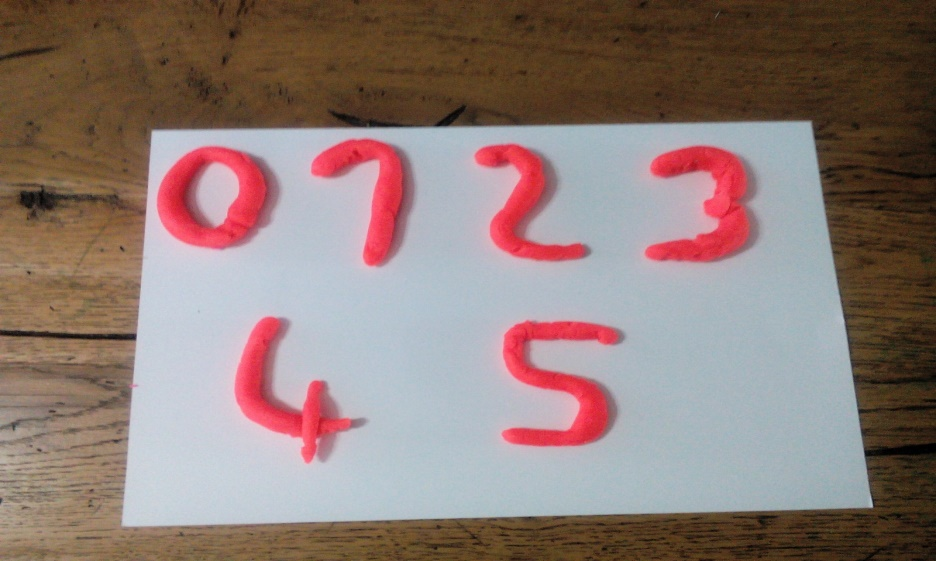 0 1 2 3
4 5